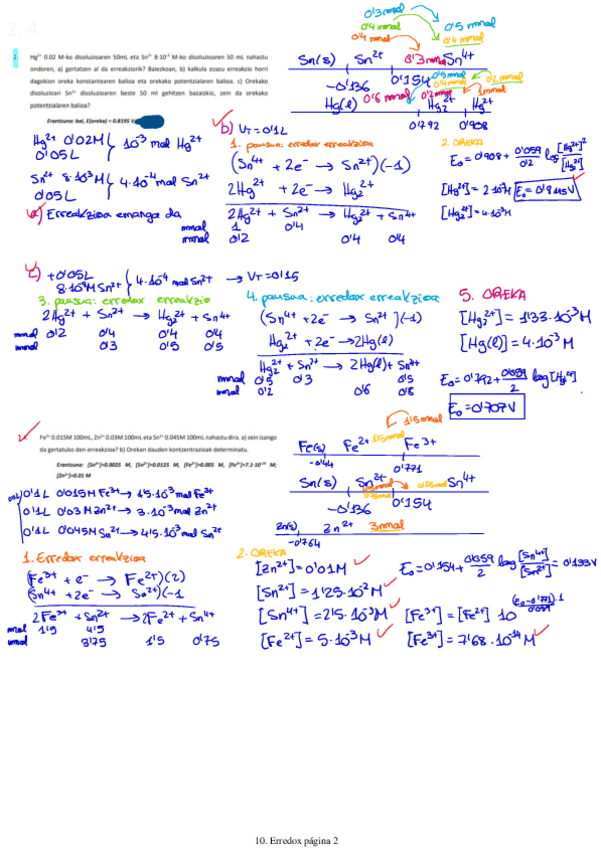 2, 4
Hg²⁺ 0.02 M-ko disoluzioaren 50mL eta Sn²⁺ 8·10⁻³ M-ko disoluzioaren 50 mL nahastu
ondoren, a) gertatzen al da erreakziorik? Baiezkoan, b) kalkula ezazu erreakzio horri
dagokion oreka konstantearen balioa eta orekako potentzialaren balioa. c) Orekako
disoluzioari Sn²⁺ disoluzioaren beste 50 ml gehitzen bazaizkio, zein da orekako
potentzialaren balioa?
Erantsuna: bai, E(oreka) = 0.8195 V
0'3 mmol
0'4 mmol 0'5 mmol
0'4 mmol
Sn(s) Sn²⁺ 0'3 mmol Sn⁴⁺
-0'136 0'154
0'4 mmol 0'2 mmol
Hg(l) 0'6 mmol 0'2 mmol Hg₂²⁺ 1 mmol Hg²⁺
0'792 0'908
Hg²⁺ 0'02M
0'05L
10⁻³ mol Hg²⁺
Sn²⁺ 8·10⁻³M
0'05L
4·10⁻⁴ mol Sn²⁺
a) Erreakzioa emango da
b) V_T = 0'1L
1. pausua: erredox erreakzioa
(Sn⁴⁺ + 2e⁻ → Sn²⁺)(-1)
2Hg²⁺ + 2e⁻ → Hg₂²⁺
2Hg²⁺ + Sn²⁺ → Hg₂²⁺ + Sn⁴⁺
mmol 1 0'4
mmol 0'2 0'4 0'4
2. OREKA
E₀ = 0'908 + 0'059/2 log [Hg²⁺]²/[Hg₂²⁺]
[Hg²⁺] = 2·10⁻³M
[Hg₂²⁺] = 4·10⁻³M
c) +0'05L
8·10⁻³M Sn²⁺
4·10⁻⁴ mol Sn²⁺ → V_T = 0'15
3. pausua: erredox erreakzio
2Hg²⁺ + Sn²⁺ → Hg₂²⁺ + Sn⁴⁺
mmol 0'2 0'4 0'4 0'4
mmol 0'3 0'5 0'5
4. pausua: erredox erreakzioa
(Sn⁴⁺ + 2e⁻ → Sn²⁺)(-1)
Hg₂²⁺ + 2e⁻ → 2Hg(l)
Hg₂²⁺ + Sn²⁺ → 2Hg(l) + Sn⁴⁺
mmol 0'5 0'3 0'5
mmol 0'2 0'6 0'6
5. OREKA
[Hg₂²⁺] = 1'33·10⁻³M
[Hg(l)] = 4·10⁻³M
E₀ = 0'792 + 0'059/2 log [Hg₂²⁺]
E₀ = 0'707V
Fe³⁺ 0.015M 100mL, Zn²⁺ 0.03M 100mL eta Sn²⁺ 0.045M 100mL nahastu dira. a) zein izango
da gertatuko den erreakzioa? b) Orekan dauden kontzentrazioak determinatu.
Erantsuna: [Sn⁴⁺]=0.0025 M, [Sn²⁺]=0.0125 M, [Fe²⁺]=0.005 M, [Fe³⁺]=7.1·10⁻¹⁴ M;
[Zn²⁺]=0.01 M
1'5 mmol
Fe(s) Fe²⁺ 1'5 mmol Fe³⁺
-0'44 0'771
Sn(s) Sn²⁺ Sn⁴⁺
-0'136 0'154
Zn(s) Zn²⁺ 3mmol
-0'764
0'1L 0'015M Fe³⁺ → 1'5·10⁻³ mol Fe³⁺
0'1L 0'03M Zn²⁺ → 3·10⁻³ mol Zn²⁺
0'1L 0'045M Sn²⁺ → 4'5·10⁻³ mol Sn²⁺
1. Erredox erreakzioa
(Fe³⁺ + e⁻ → Fe²⁺)(2)
(Sn⁴⁺ + 2e⁻ → Sn²⁺)-1
2Fe³⁺ + Sn²⁺ → 2Fe²⁺ + Sn⁴⁺
mmol 1'5 4'5
mmol 3'75 1'5 0'75
2- OREKA
[Zn²⁺] = 0'01M
[Sn²⁺] = 1'25·10⁻²M
[Sn⁴⁺] = 2'5·10⁻³M
[Fe²⁺] = 5·10⁻³M
E₀ = 0'154 + 0'059/2 log [Sn⁴⁺]/[Sn²⁺] = 0'133V
[Fe³⁺] = [Fe²⁺] 10^((E₀-0'771)·1/0'059)
[Fe³⁺] = 7'68·10⁻¹⁴M
10. Erredox página 2